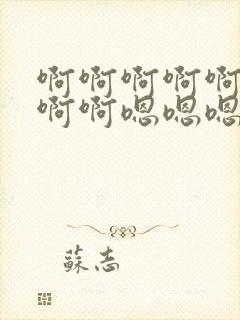 啊啊啊啊啊
啊啊嗯嗯嗯
蘇志